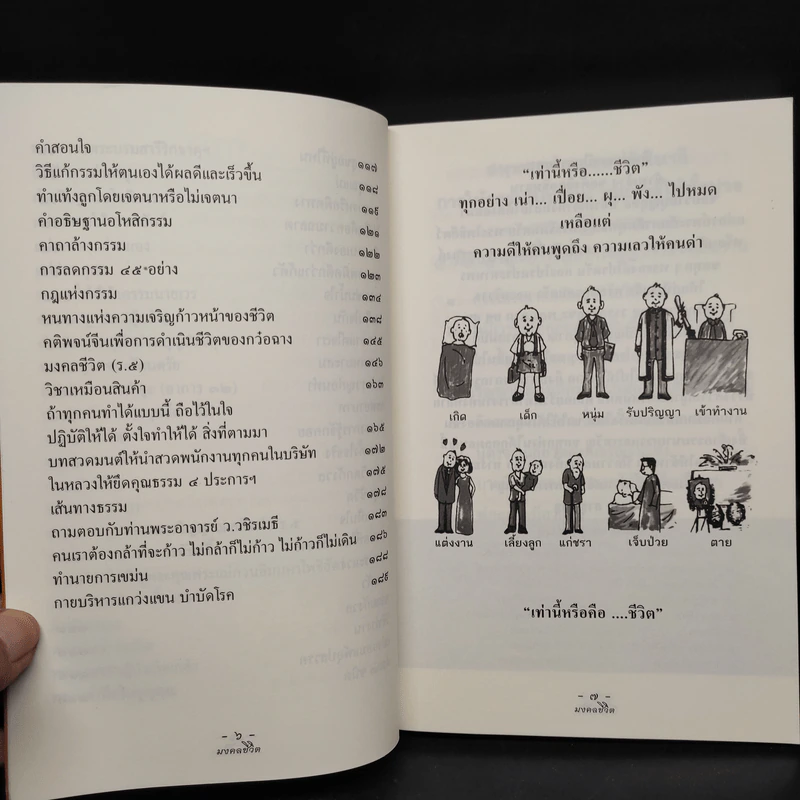 คำสอนใจ
วิธีแก้กรรมให้ตนเองได้ผลดีและเร็วขึ้น ๑๑๗
ทำแท้งลูกโดยเจตนาหรือไม่เจตนา ๑๑๘
คำอธิษฐานอโหสิกรรม ๑๑๙
คาถาล้างกรรม ๑๒๑
การลดกรรม ๔๕ อย่าง ๑๒๒
กฎแห่งกรรม ๑๒๓
หนทางแห่งความเจริญก้าวหน้าของชีวิต ๑๓๔
คติพจน์จีนเพื่อการดำเนินชีวิตของกว๋อฉาง ๑๓๘
มงคลชีวิต (ร.๕) ๑๔๕
วิชาเหมือนสินค้า ๑๔๖
ถ้าทุกคนทำได้แบบนี้ ถือไว้ในใจ ๑๖๓
ปฏิบัติให้ได้ ตั้งใจทำให้ได้ สิ่งที่ตามมา
บทสวดมนต์ให้นำสวดพนักงานทุกคนในบริษัท ๑๖๕
ในหลวงให้ยึดคุณธรรม ๔ ประการฯ ๑๗๒
เส้นทางธรรม ๑๗๕
ถามตอบกับท่านพระอาจารย์ ว.วชิรเมธี ๑๗๘
คนเราต้องกล้าที่จะก้าว ไม่กล้าก็ไม่ก้าว ไม่ก้าวก็ไม่เดิน ๑๘๓
ทำนายการเขม่น ๑๘๖
กายบริหารแกว่งแขน บำบัดโรค ๑๘๘
๑๘๙
- ๖ -
มงคลชีวิต
“เท่านี้หรือ......ชีวิต”
ทุกอย่าง เน่า... เปื่อย... ผุ... พัง... ไปหมด
เหลือแต่
ความดีให้คนพูดถึง ความเลวให้คนด่า
เกิด เด็ก หนุ่ม รับปริญญา เข้าทำงาน
แต่งงาน เลี้ยงลูก แก่ชรา เจ็บป่วย ตาย
“เท่านี้หรือคือ ....ชีวิต”
- ๗ -
มงคลชีวิต